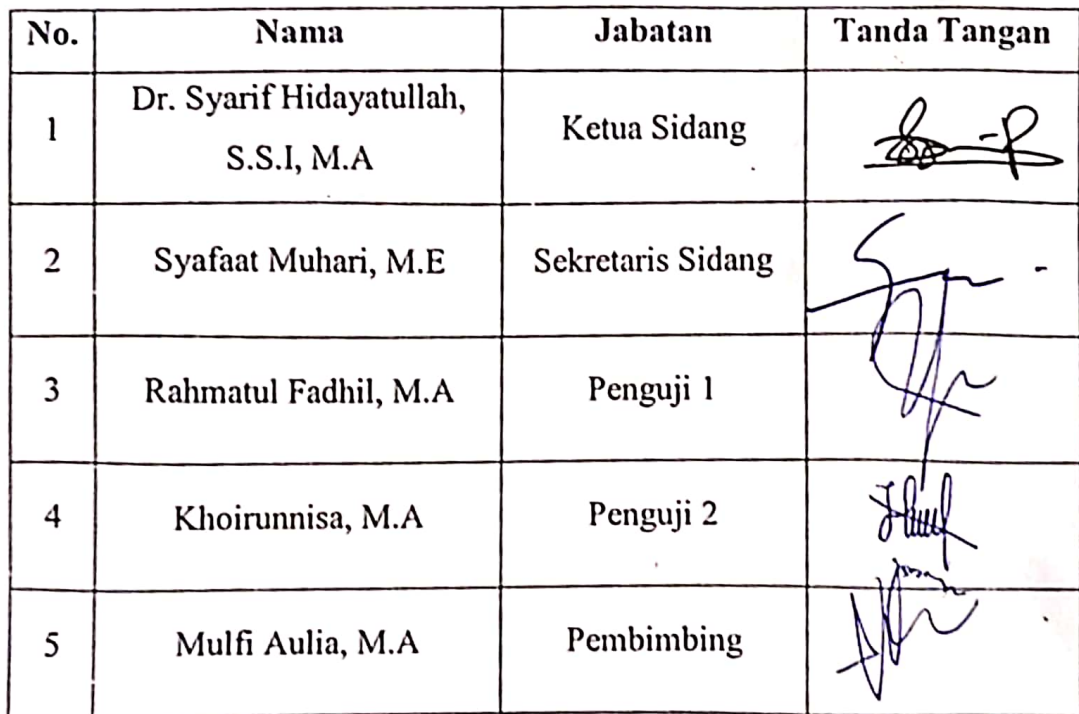 No. Nama Jabatan Tanda Tangan
1 Dr. Syarif Hidayatullah, S.S.I, M.A Ketua Sidang
2 Syafaat Muhari, M.E Sekretaris Sidang
3 Rahmatul Fadhil, M.A Penguji 1
4 Khoirunnisa, M.A Penguji 2
5 Mulfi Aulia, M.A Pembimbing